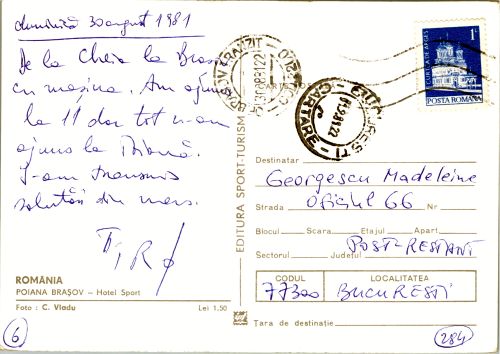 duminică 30 august 1981
De la Cheia la Brașov
cu mașina. Am ajuns
la 11 dar tot n-am
ajuns la Poiană.
I-am transmis
salutări din mers.
ROMÂNIA
POIANA BRAȘOV — Hotel Sport
Foto : C. Vladu
Lei 1,50
6
EDITURA SPORT-TURISM
BRAȘOV TRANZIT
CARTARE
1L
CURTEA DE ARGEȘ
POSTA ROMANA
Destinatar
Georgescu Madeleine
Strada Oficiul 66 Nr
Blocul Scara Etajul Apart.
Sectorul Județul POST-RESTANT
CODUL LOCALITATEA
77300 BUCUREȘTI
Țara de destinație
284